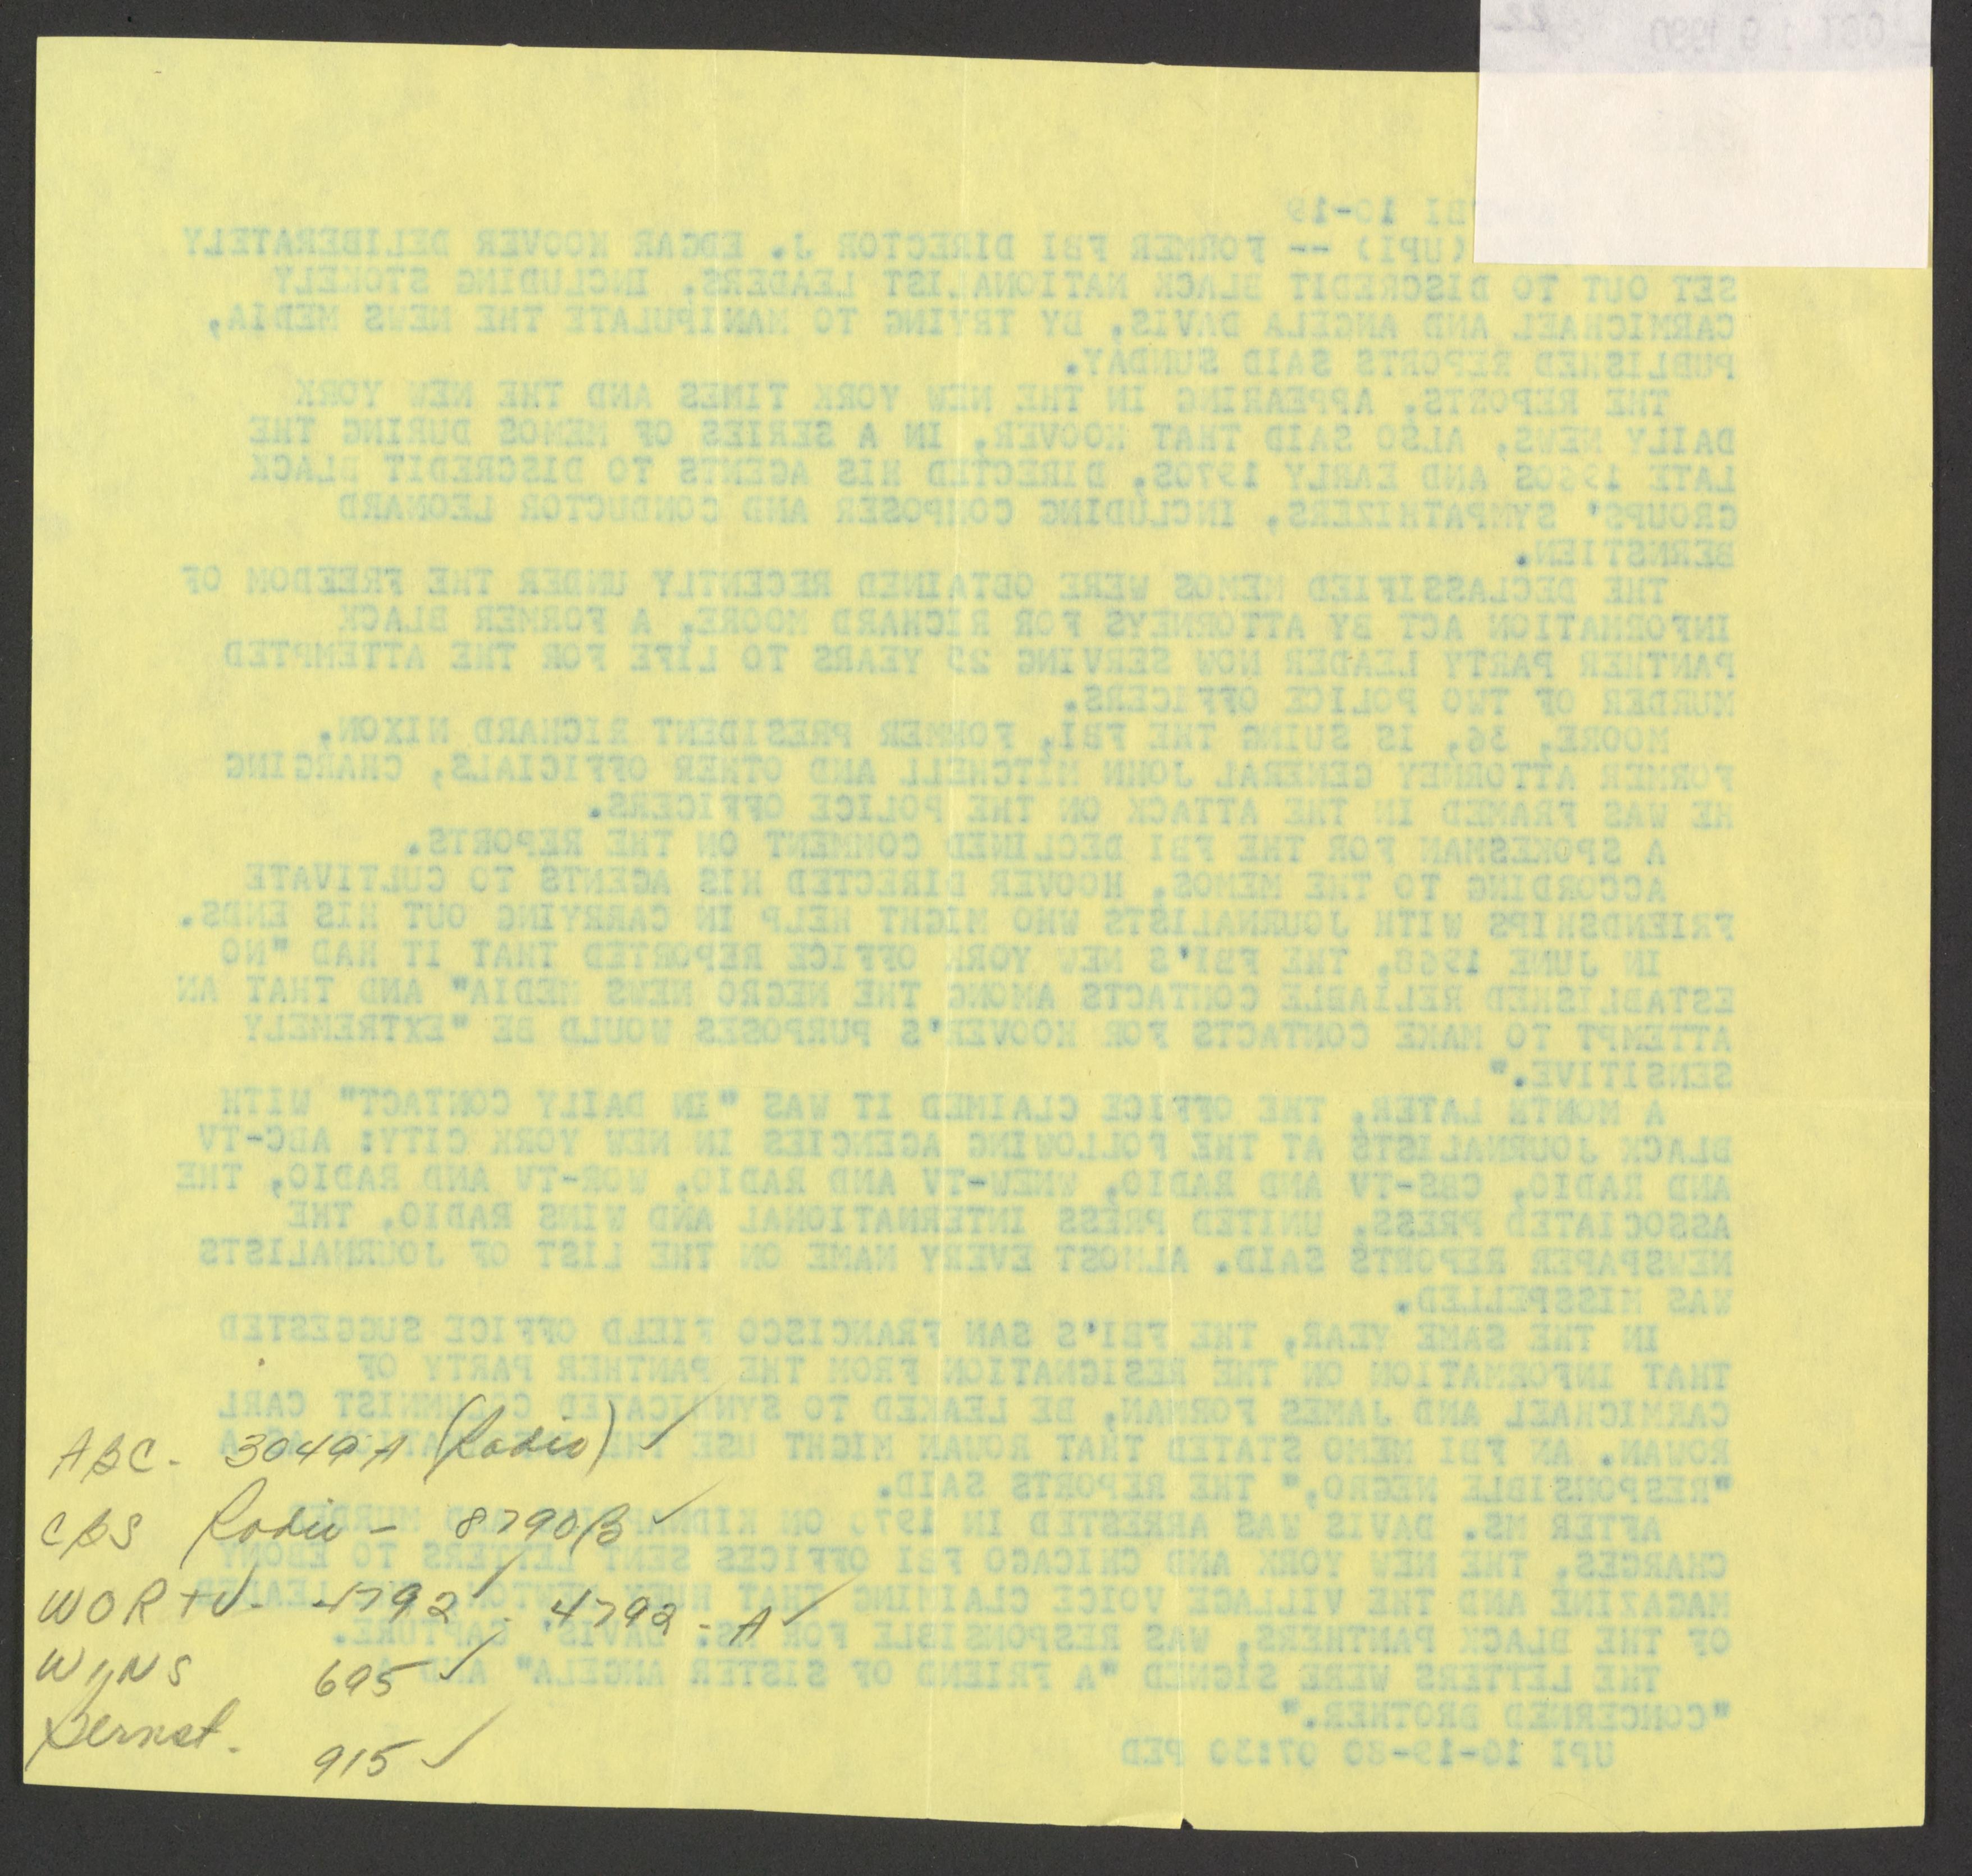 OCT 19 1980
FBI 10-19
(UPI) -- FORMER FBI DIRECTOR J. EDGAR HOOVER DELIBERATELY
SET OUT TO DISCREDIT BLACK NATIONALIST LEADERS, INCLUDING STOKELY
CARMICHAEL AND ANGELA DAVIS, BY TRYING TO MANIPULATE THE NEWS MEDIA,
PUBLISHED REPORTS SAID SUNDAY.
THE REPORTS, APPEARING IN THE NEW YORK TIMES AND THE NEW YORK
DAILY NEWS, ALSO SAID THAT HOOVER, IN A SERIES OF MEMOS DURING THE
LATE 1960S AND EARLY 1970S, DIRECTED HIS AGENTS TO DISCREDIT BLACK
GROUPS' SYMPATHIZERS, INCLUDING COMPOSER AND CONDUCTOR LEONARD
BERNSTIEN.
THE DECLASSIFIED MEMOS WERE OBTAINED RECENTLY UNDER THE FREEDOM OF
INFORMATION ACT BY ATTORNEYS FOR RICHARD MOORE, A FORMER BLACK
PANTHER PARTY LEADER NOW SERVING 25 YEARS TO LIFE FOR THE ATTEMPTED
MURDER OF TWO POLICE OFFICERS.
MOORE, 36, IS SUING THE FBI, FORMER PRESIDENT RICHARD NIXON,
FORMER ATTORNEY GENERAL JOHN MITCHELL AND OTHER OFFICIALS, CHARGING
HE WAS FRAMED IN THE ATTACK ON THE POLICE OFFICERS.
A SPOKESMAN FOR THE FBI DECLINED COMMENT ON THE REPORTS.
ACCORDING TO THE MEMOS, HOOVER DIRECTED HIS AGENTS TO CULTIVATE
FRIENDSHIPS WITH JOURNALISTS WHO MIGHT HELP IN CARRYING OUT HIS ENDS.
IN JUNE 1968, THE FBI'S NEW YORK OFFICE REPORTED THAT IT HAD "NO
ESTABLISHED RELIABLE CONTACTS AMONG THE NEGRO NEWS MEDIA" AND THAT AN
ATTEMPT TO MAKE CONTACTS FOR HOOVER'S PURPOSES WOULD BE "EXTREMELY
SENSITIVE."
A MONTH LATER, THE OFFICE CLAIMED IT WAS "IN DAILY CONTACT" WITH
BLACK JOURNALISTS AT THE FOLLOWING AGENCIES IN NEW YORK CITY: ABC-TV
AND RADIO, CBS-TV AND RADIO, WNEW-TV AND RADIO, WOR-TV AND RADIO, THE
ASSOCIATED PRESS, UNITED PRESS INTERNATIONAL AND WINS RADIO, THE
NEWSPAPER REPORTS SAID. ALMOST EVERY NAME ON THE LIST OF JOURNALISTS
WAS MISSPELLED.
IN THE SAME YEAR, THE FBI'S SAN FRANCISCO FIELD OFFICE SUGGESTED
THAT INFORMATION ON THE RESIGNATION FROM THE PANTHER PARTY OF
CARMICHAEL AND JAMES FORMAN, BE LEAKED TO SYNDICATED COLUMNIST CARL
ROWAN. AN FBI MEMO STATED THAT ROWAN MIGHT USE THE INFORMATION AS A
"RESPONSIBLE NEGRO," THE REPORTS SAID.
AFTER MS. DAVIS WAS ARRESTED IN 1970 ON KIDNAPPING AND MURDER
CHARGES, THE NEW YORK AND CHICAGO FBI OFFICES SENT LETTERS TO EBONY
MAGAZINE AND THE VILLAGE VOICE CLAIMING THAT HUEY NEWTON, THE LEADER
OF THE BLACK PANTHERS, WAS RESPONSIBLE FOR MS. DAVIS' CAPTURE.
THE LETTERS WERE SIGNED "A FRIEND OF SISTER ANGELA" AND A
"CONCERNED BROTHER."
UPI 10-19-80 07:30 PED
ABC - 3049A (Radio) ✓
CBS Radio - 8790B ✓
WOR TV - 4792 ✓ - 4792-A ✓
WINS 695 ✓
Bernst. 915 ✓